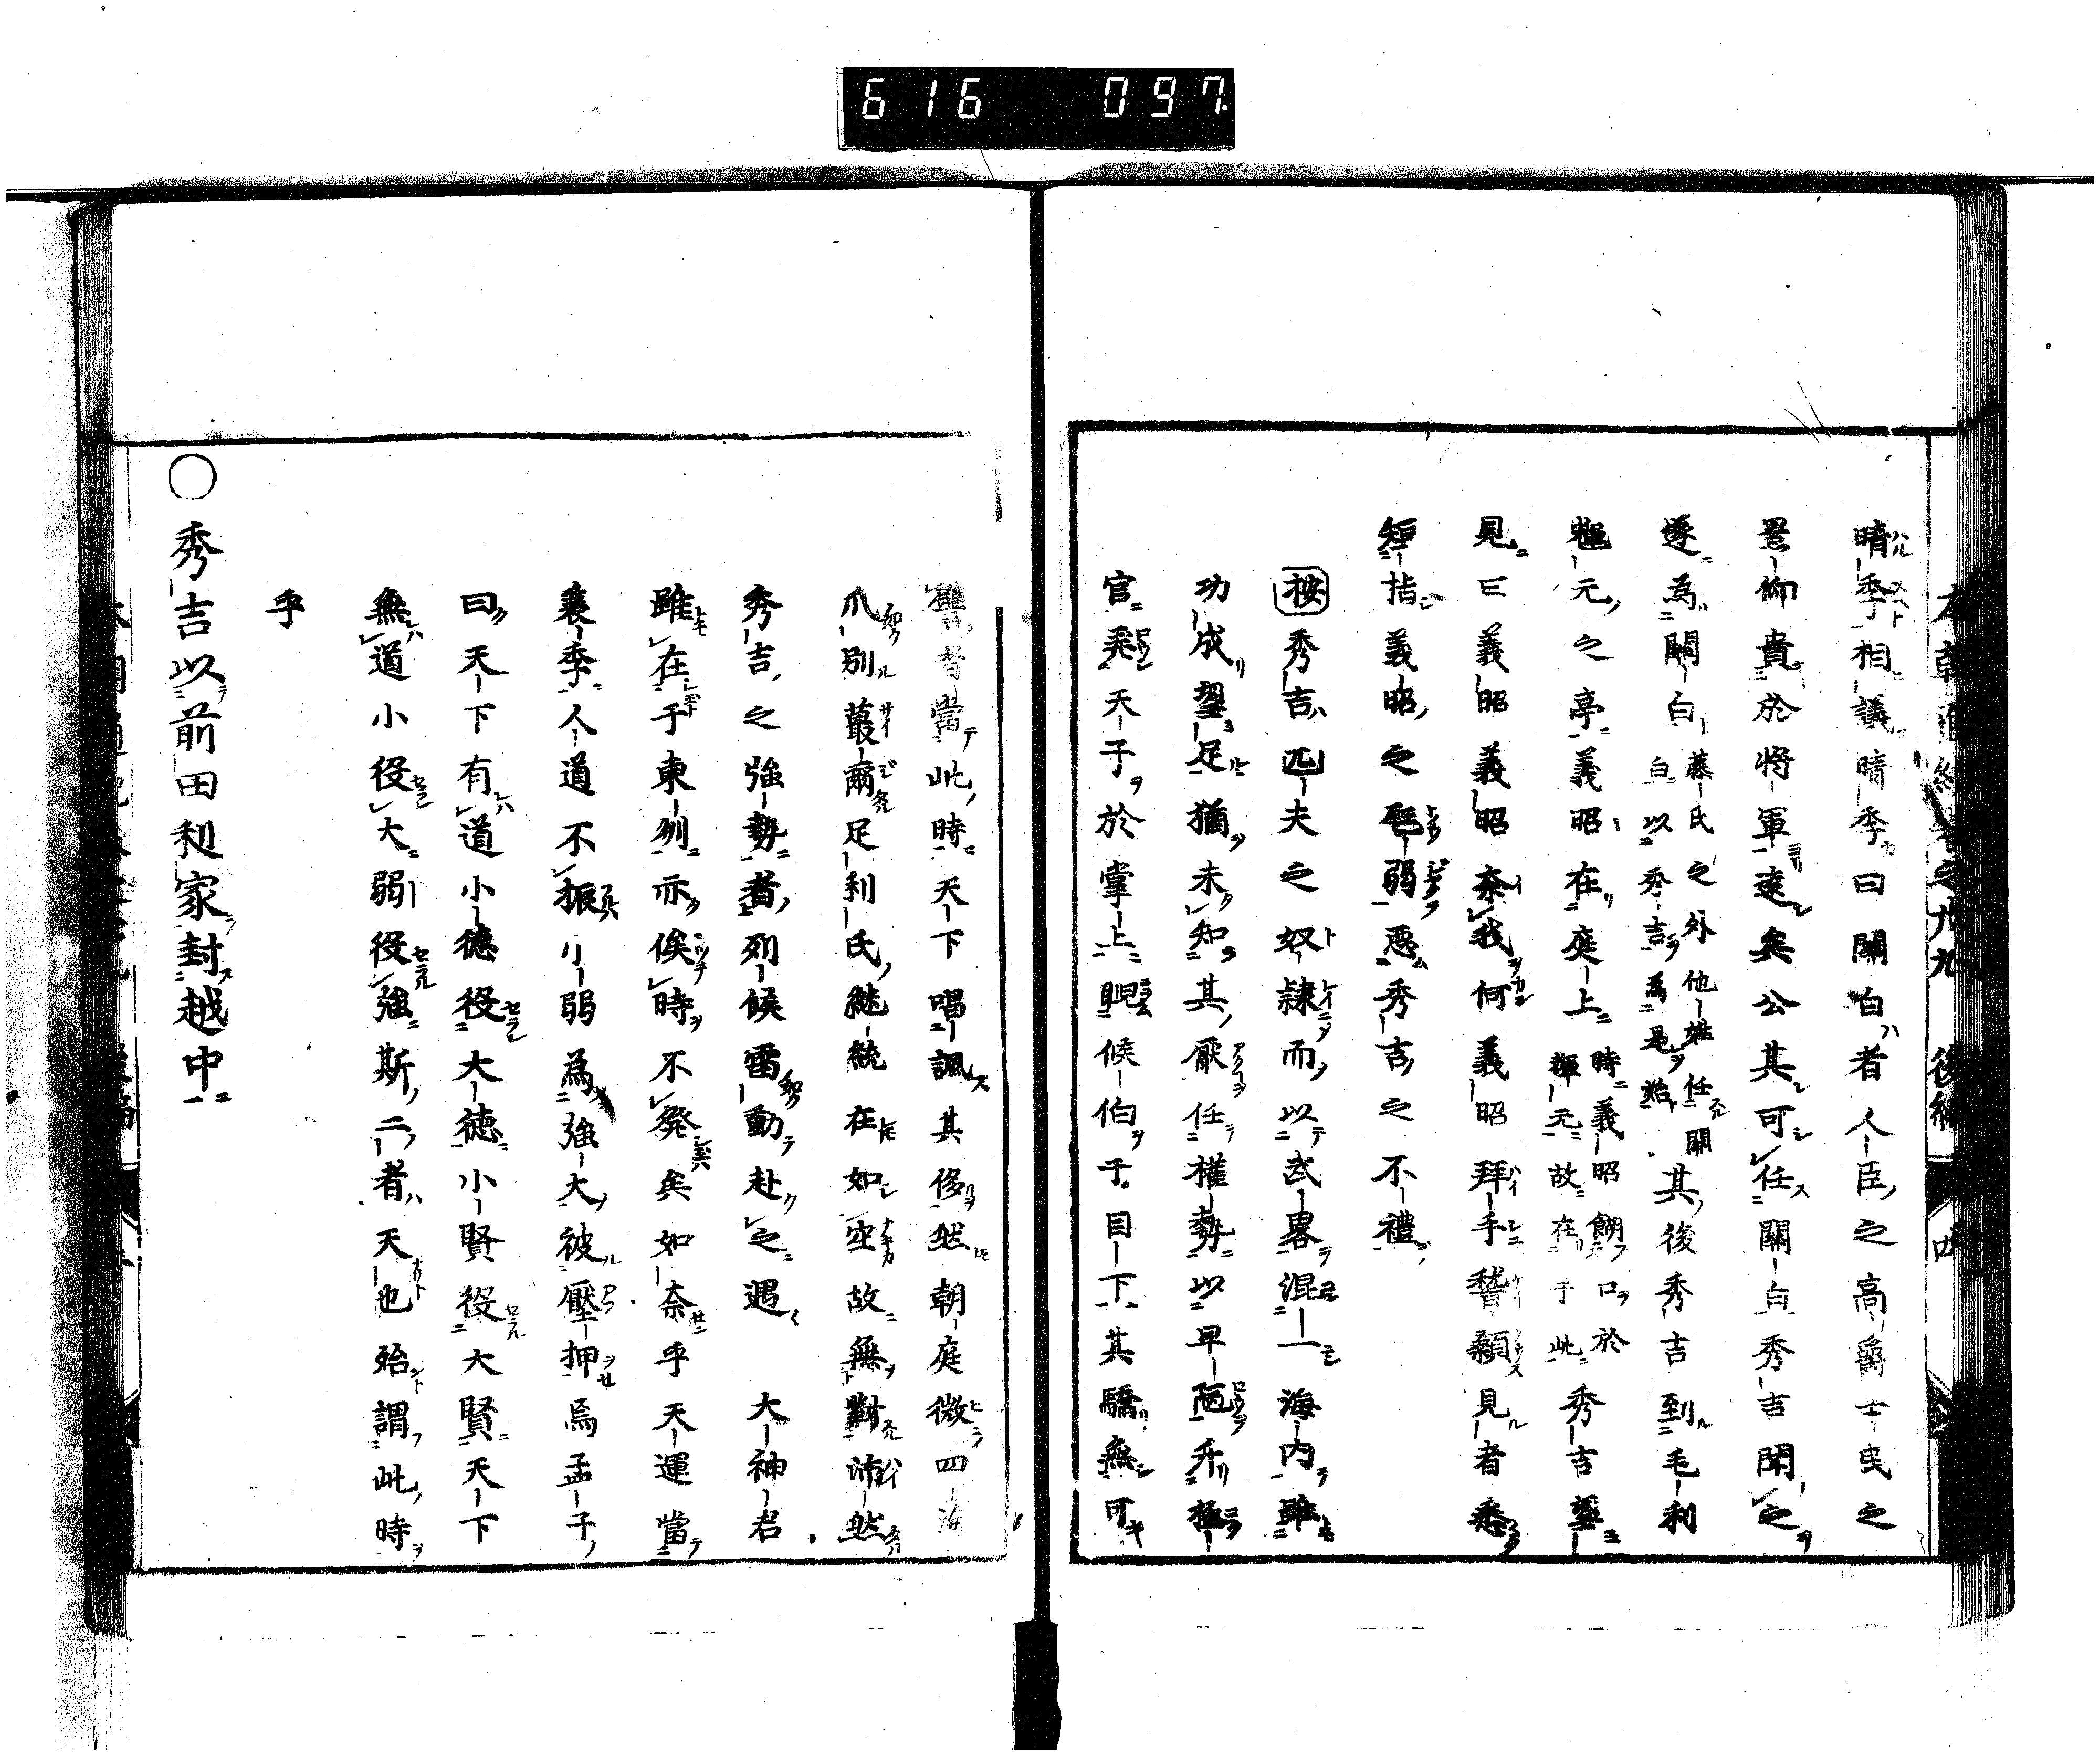 616 097
晴季相議晴季曰關白者人臣之高爵士民之
景仰貴於將軍遠矣公其可任關白秀吉聞之
遂為關白藤氏之外他姓任關白以秀吉為是始其後秀吉到毛利
輝元之亭義昭在庭上時義昭餬口於輝元故在于此秀吉望
見曰義昭義昭奈我何義昭拜手稽顙見者悉
短指義昭之尫弱惡秀吉之不禮
按秀吉匹夫之奴隷而以武畧混一海内雖
功成望足猶未知其厭任權勢以卑陋升極
官弄天子於掌上睨候伯于目下其驕無可
譬者當此時天下唱諷其侈然朝庭微四海
爪別蕞爾足利氏継統在如空故無對沛然
秀吉之強勢者列候雷動赴之遇大神君
雖在于東列亦俟時不発矣如奈乎天運當
衰季人道不振小弱為強大被壓押焉孟子
曰天下有道小德役大德小賢役大賢天下
無道小役大弱役強斯二者天也殆謂此時
乎
○秀吉以前田利家封越中